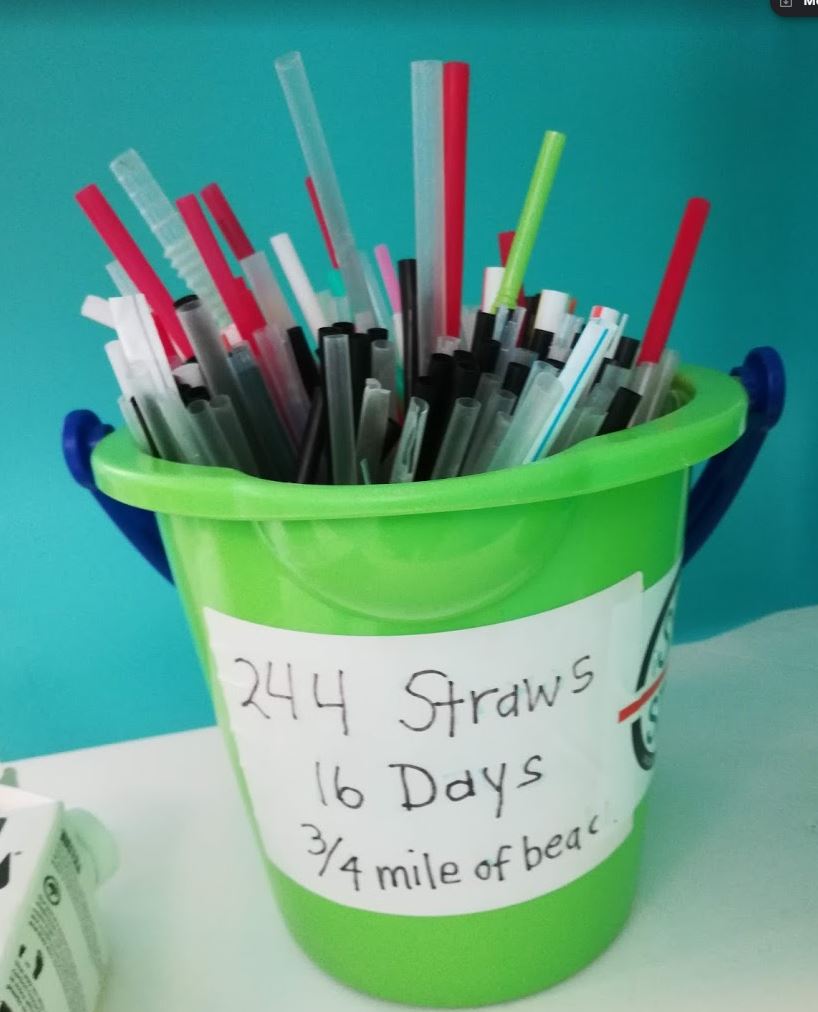 244 Straws
16 Days
3/4 mile of beac